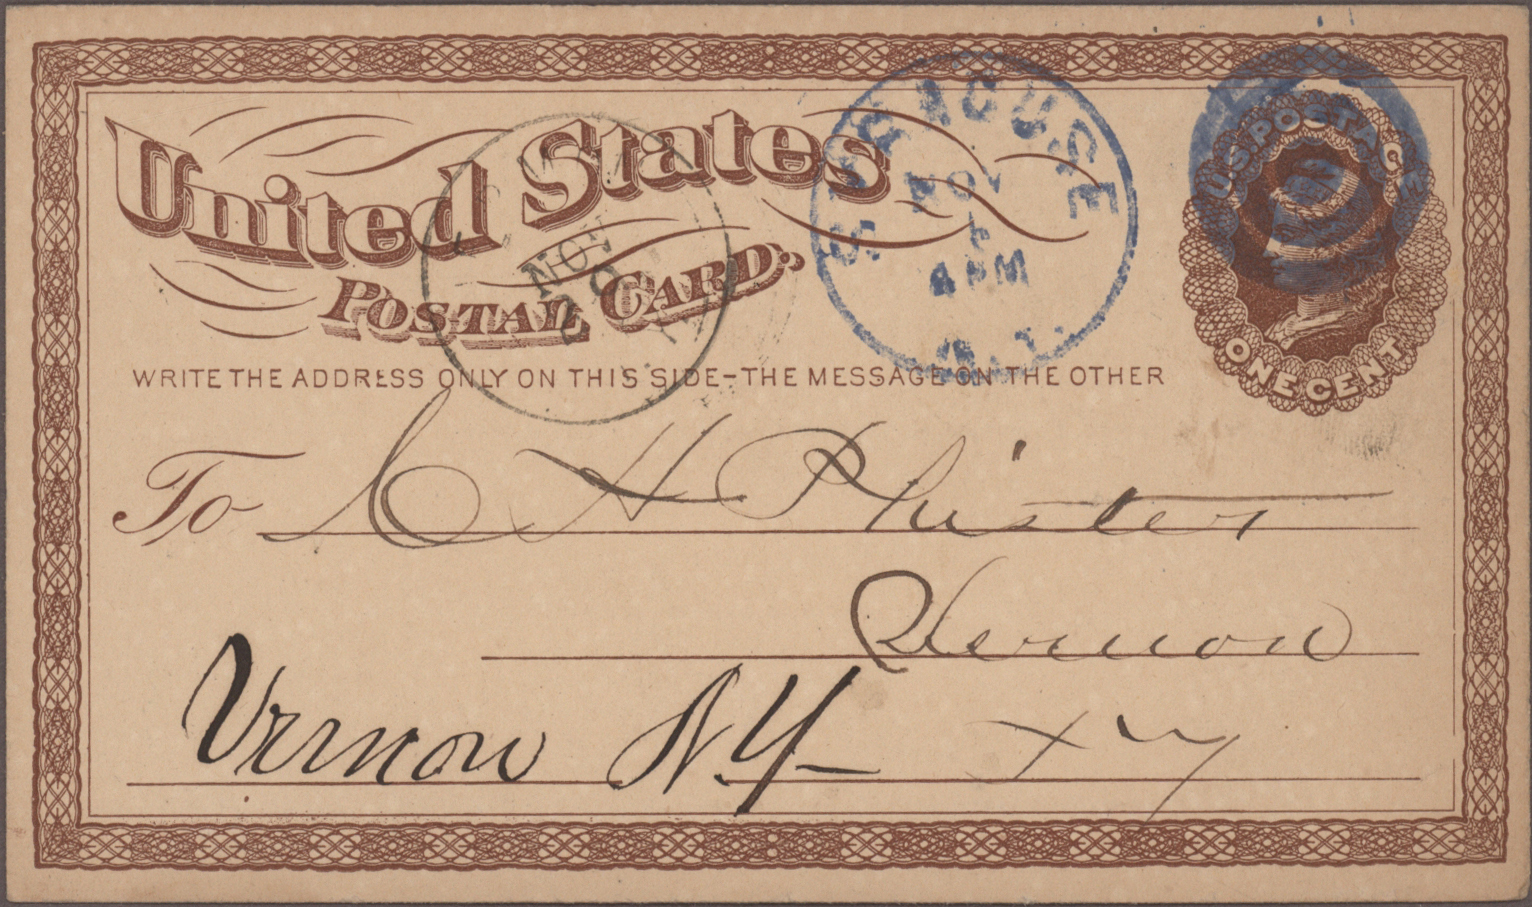 United States
POSTAL CARD.
SYRACUSE
NOV
5
4 PM
N.Y.
U.S. POSTAGE
ONE CENT
NOV
WRITE THE ADDRESS ONLY ON THIS SIDE-THE MESSAGE ON THE OTHER
To C H Phister
Vernon
Vernon NY